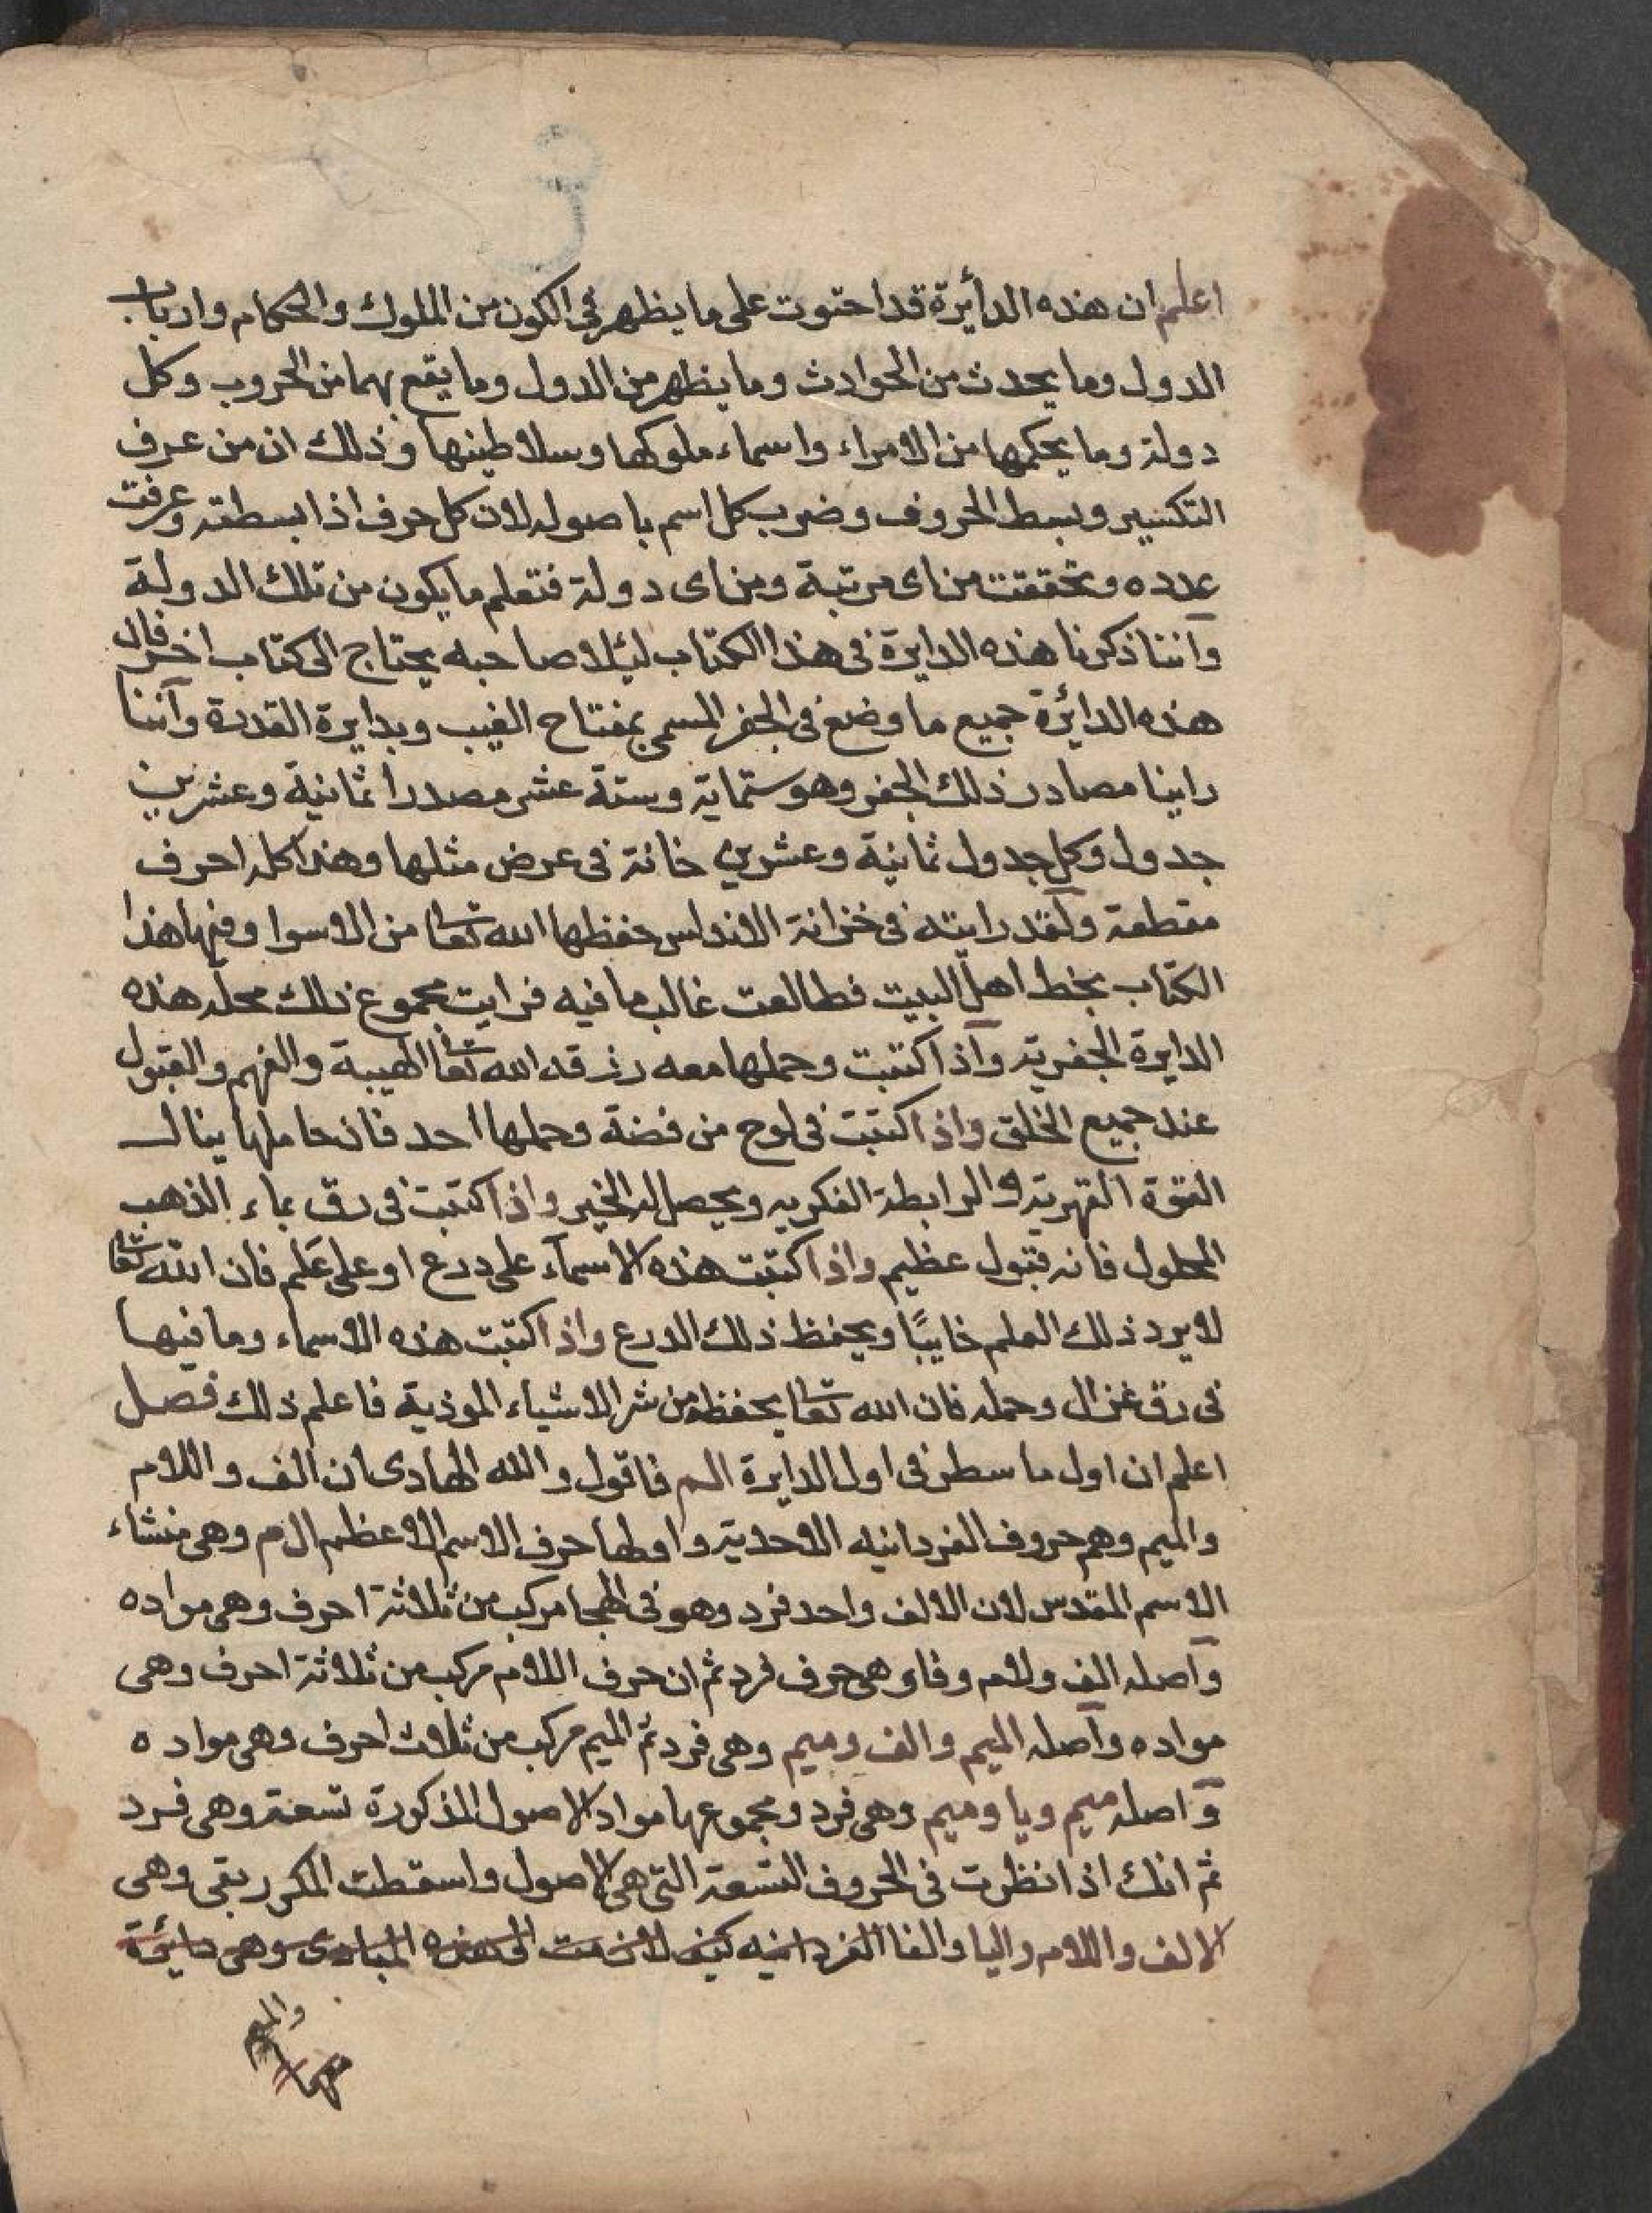 اعلم ان هذه الدأيرة قد احتوت على ما يظهر في الكون من الملوك والحكام وارباب
الدول وما يحدث من الحوادث وما يظهر من الدول وما يقع بهما من الحروب وكل
دولة وما يحكمها من الامراء واسماء ملوكها وسلاطينها وذلك ان من عرف
التكسير وبسط الحروف وضرب كل اسم باصوله لان كل حرف اذا بسطته وعرفت
عدده وتحققت من اى مرتبة ومن اى دولة فتعلم ما يكون من تلك الدولة
واننا ذكرنا هذه الدايرة فى هذا الكتاب ليئلا صاحبه يحتاج الى كتاب اخر فان
هذه الدائرة جميع ما وضع فى الجفر المسمى بمفتاح الغيب وبدايرة القدرة واننا
راينا مصادر ذلك الجفر وهو ستماية وستة عشر مصدرا ثمانية وعشرين
جدول وكل جدول ثمانية وعشرين خانة فى عرض مثلها وهذا كله احرف
مقطعة ولقد رايته فى خزانة الاندلس حفظها الله تعا من الاسوا وفيها هذا
الكتاب بخط اهل البيت فطالعت غالب ما فيه فرايت مجموع ذلك محله هذه
الدايرة الجفرية واذا كتبت وحملها معه رزقه الله تعا الهيبة والفهم والقبول
عند جميع الخلق واذا كتبت فى لوح من فضة وحملها احد فان حاملها ينال
القوة القهرية والرابطة الفكريه ويحصل له الخير واذا كتبت فى رق بماء الذهب
المحلول فانه قبول عظيم واذا كتبت هذه الاسمآء على درع او على عَلم فان الله تعا
لا يرد ذلك العلم خايبًا ويحفظ ذلك الدرع واذا كتبت هذه الاسماء وما فيها
فى رق غزال وحمله فان الله تعا يحفظه من شر الاشياء الموذية فاعلم ذلك فصل
اعلم ان اول ما سطر فى اول الدايرة الم فاقول والله الهادى ان الف واللام
والميم وهم حروف الفردانيه الاحدية واولها حرف الاسم الاعظم ال م وهى منشاء
الاسم المقدس لان الالف واحد فرد وهو فى الهجا مركب من ثلاثة احرف وهى مواده
واصله الف ولام وفا وهى حرف فرد ثم ان حرف اللام مركب من ثلاثة احرف وهى
مواده واصله الميم والف وميم وهى فرد ثم الميم مركب من ثلاث احرف وهى مواده
واصله ميم ويا وميم وهى فرد ومجموعها مواد الاصول المذكورة تسعة وهى فرد
ثم انك اذا نظرت فى الحروف التسعة التى هى الاصول واسقطت المكرر بقى وهى
الالف واللام واليا والفا الفردانيه كيف لازمت الى هذه المبادى وهى دايرة
والميم